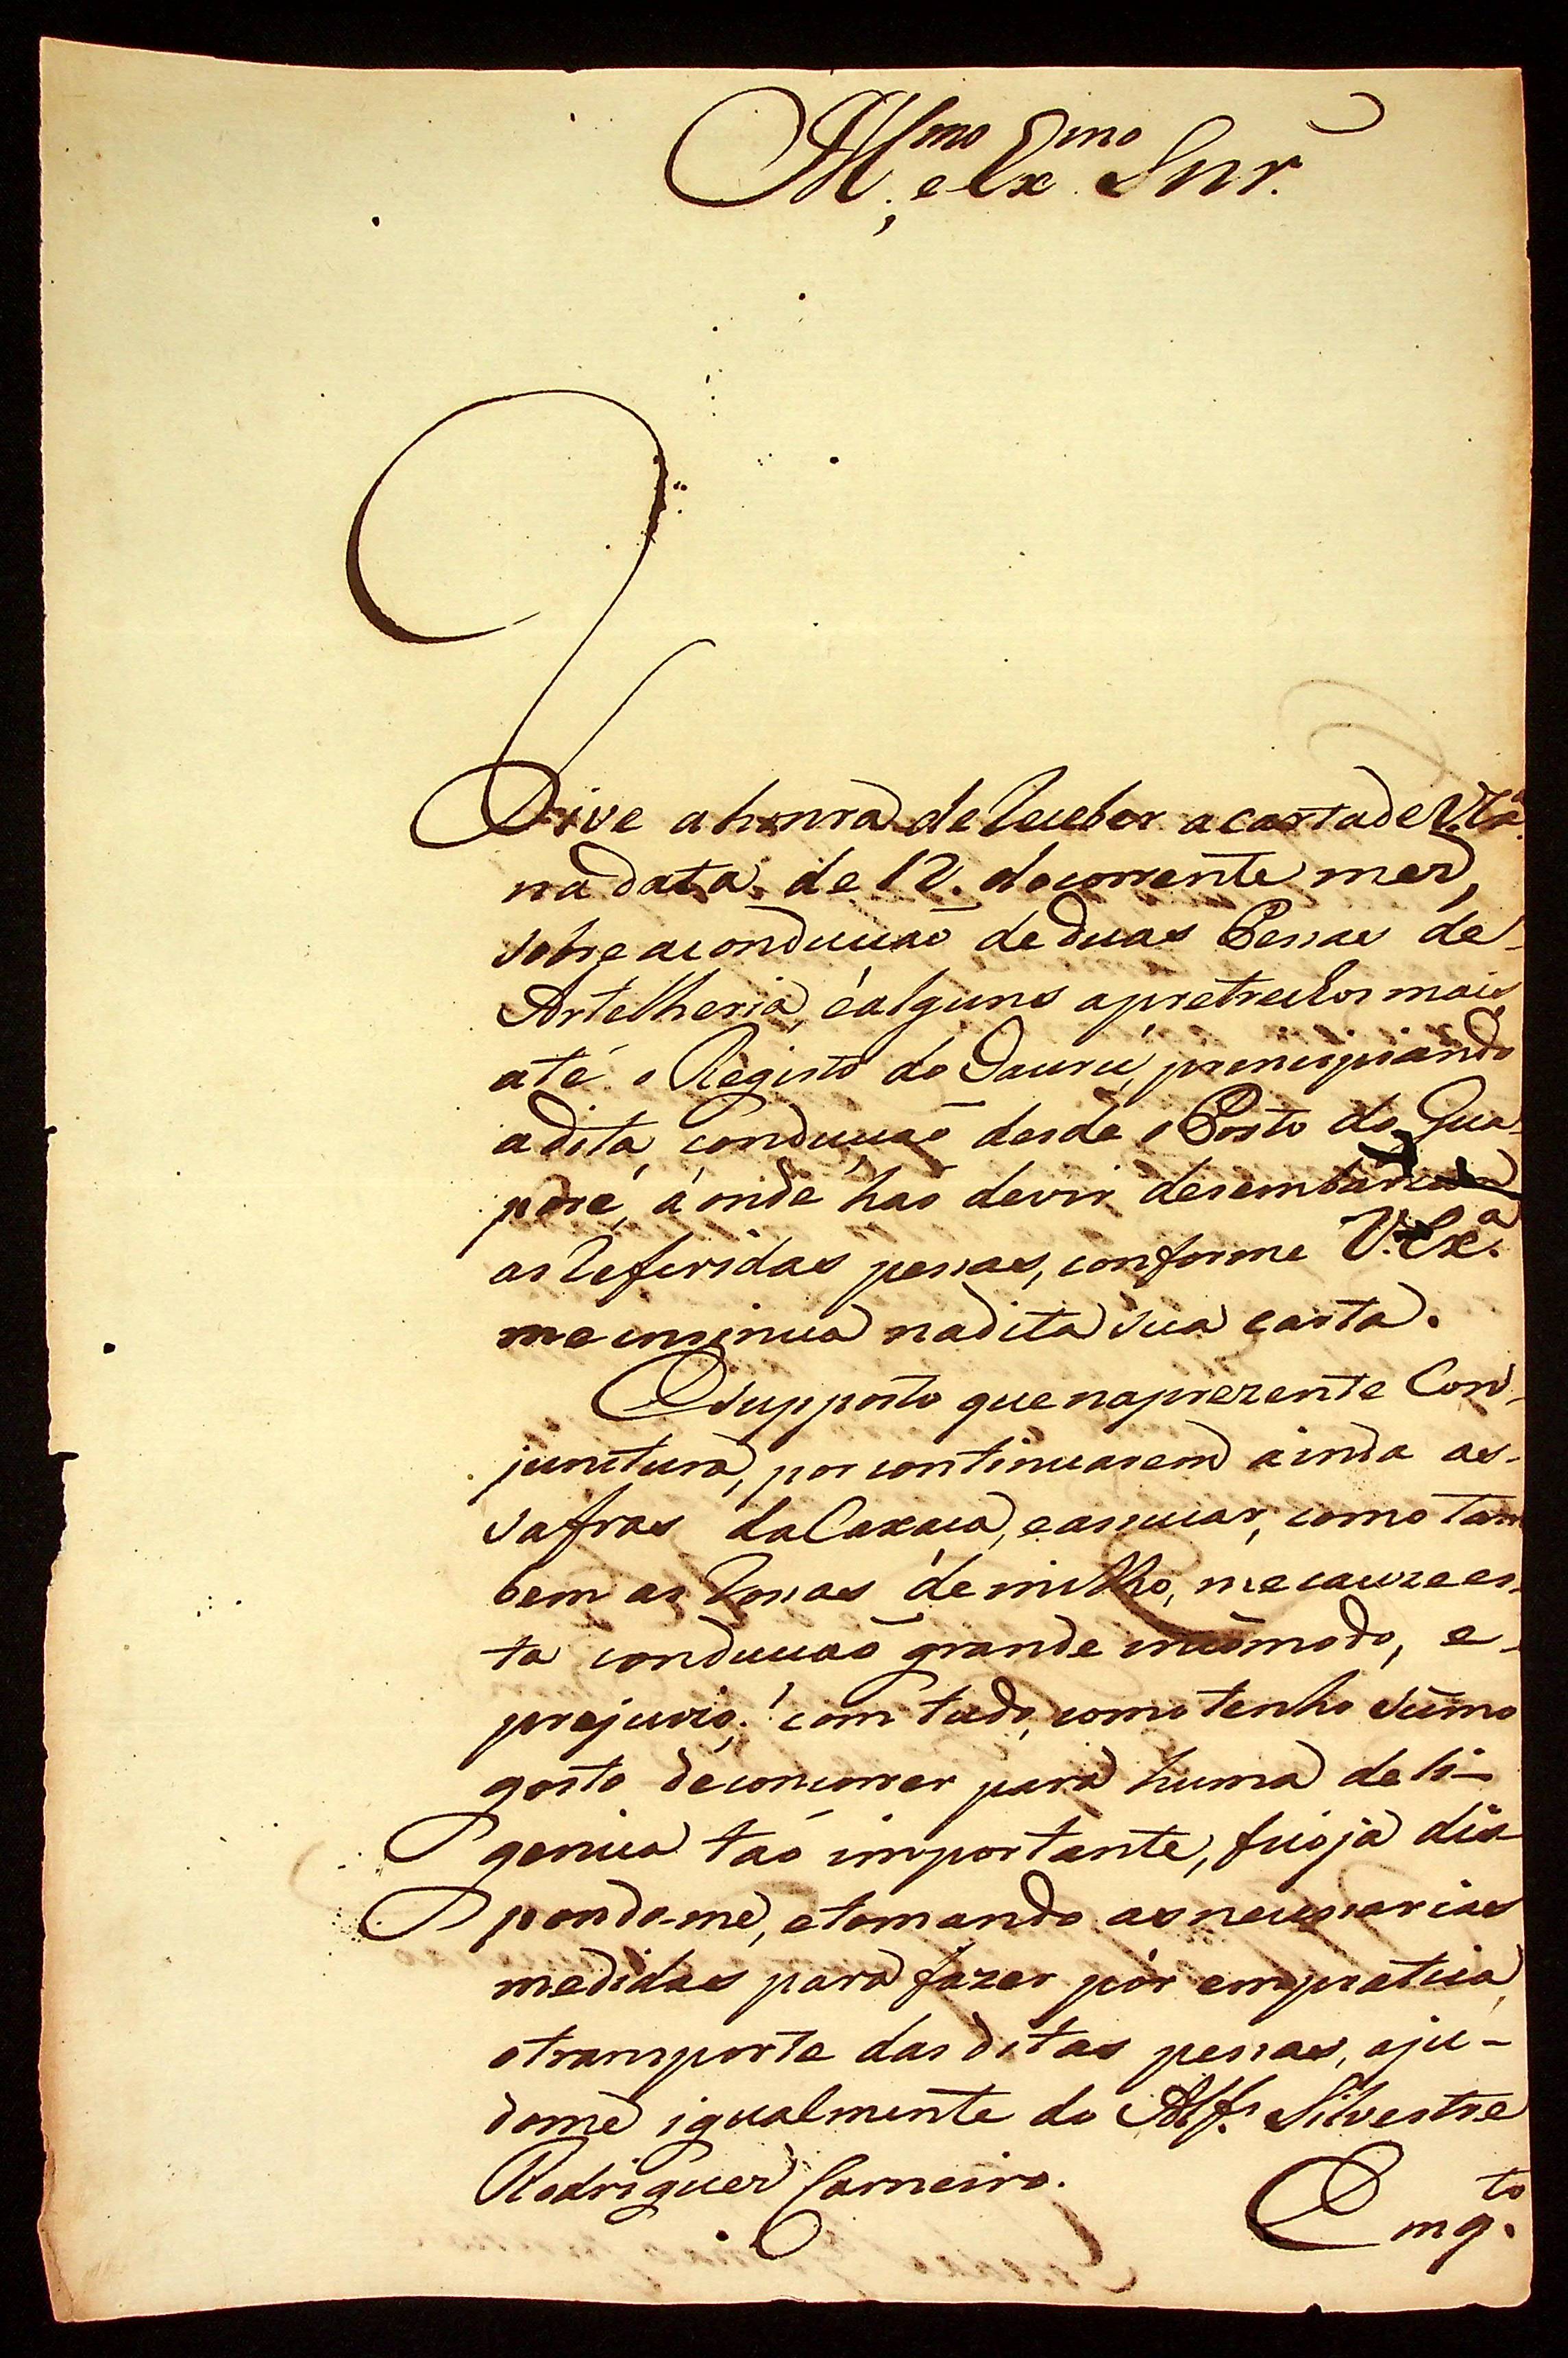 Ill.mo e Ex.mo Snr.
Tive a honra de Receber a carta de V. Ex.a
na data de 12. do corrente mez,
sobre a conducçaõ de duas Pessas de
Artelheria, e alguns apretrechos mais
até o Registo do Jaurú, prencipiando
a dita conducçaõ desde o Porto do Gua-
poré, á onde haõ de vir desembarcar
as Referidas pessas, conforme V. Ex.a
me insinua na dita sua carta.
E supposto que na prezente Con-
junctura, por continuarem ainda as
safras da Caxaça, e assucar, como tam
bem as Rossas de milho, me cauze es-
ta conducçaõ grande incõmodo, e
prejuizo; com tudo, como tenho sũmo
gosto de concorrer para huma deli-
gencia taõ importante, fico já dis-
pondo-me, e tomando as necessarias
medidas para fazer pôr em pratica
o transporte das ditas pessas, aju-
dome igualmente do Alf.s Silvestre
Rodriguez Carneiro.
Em q.to